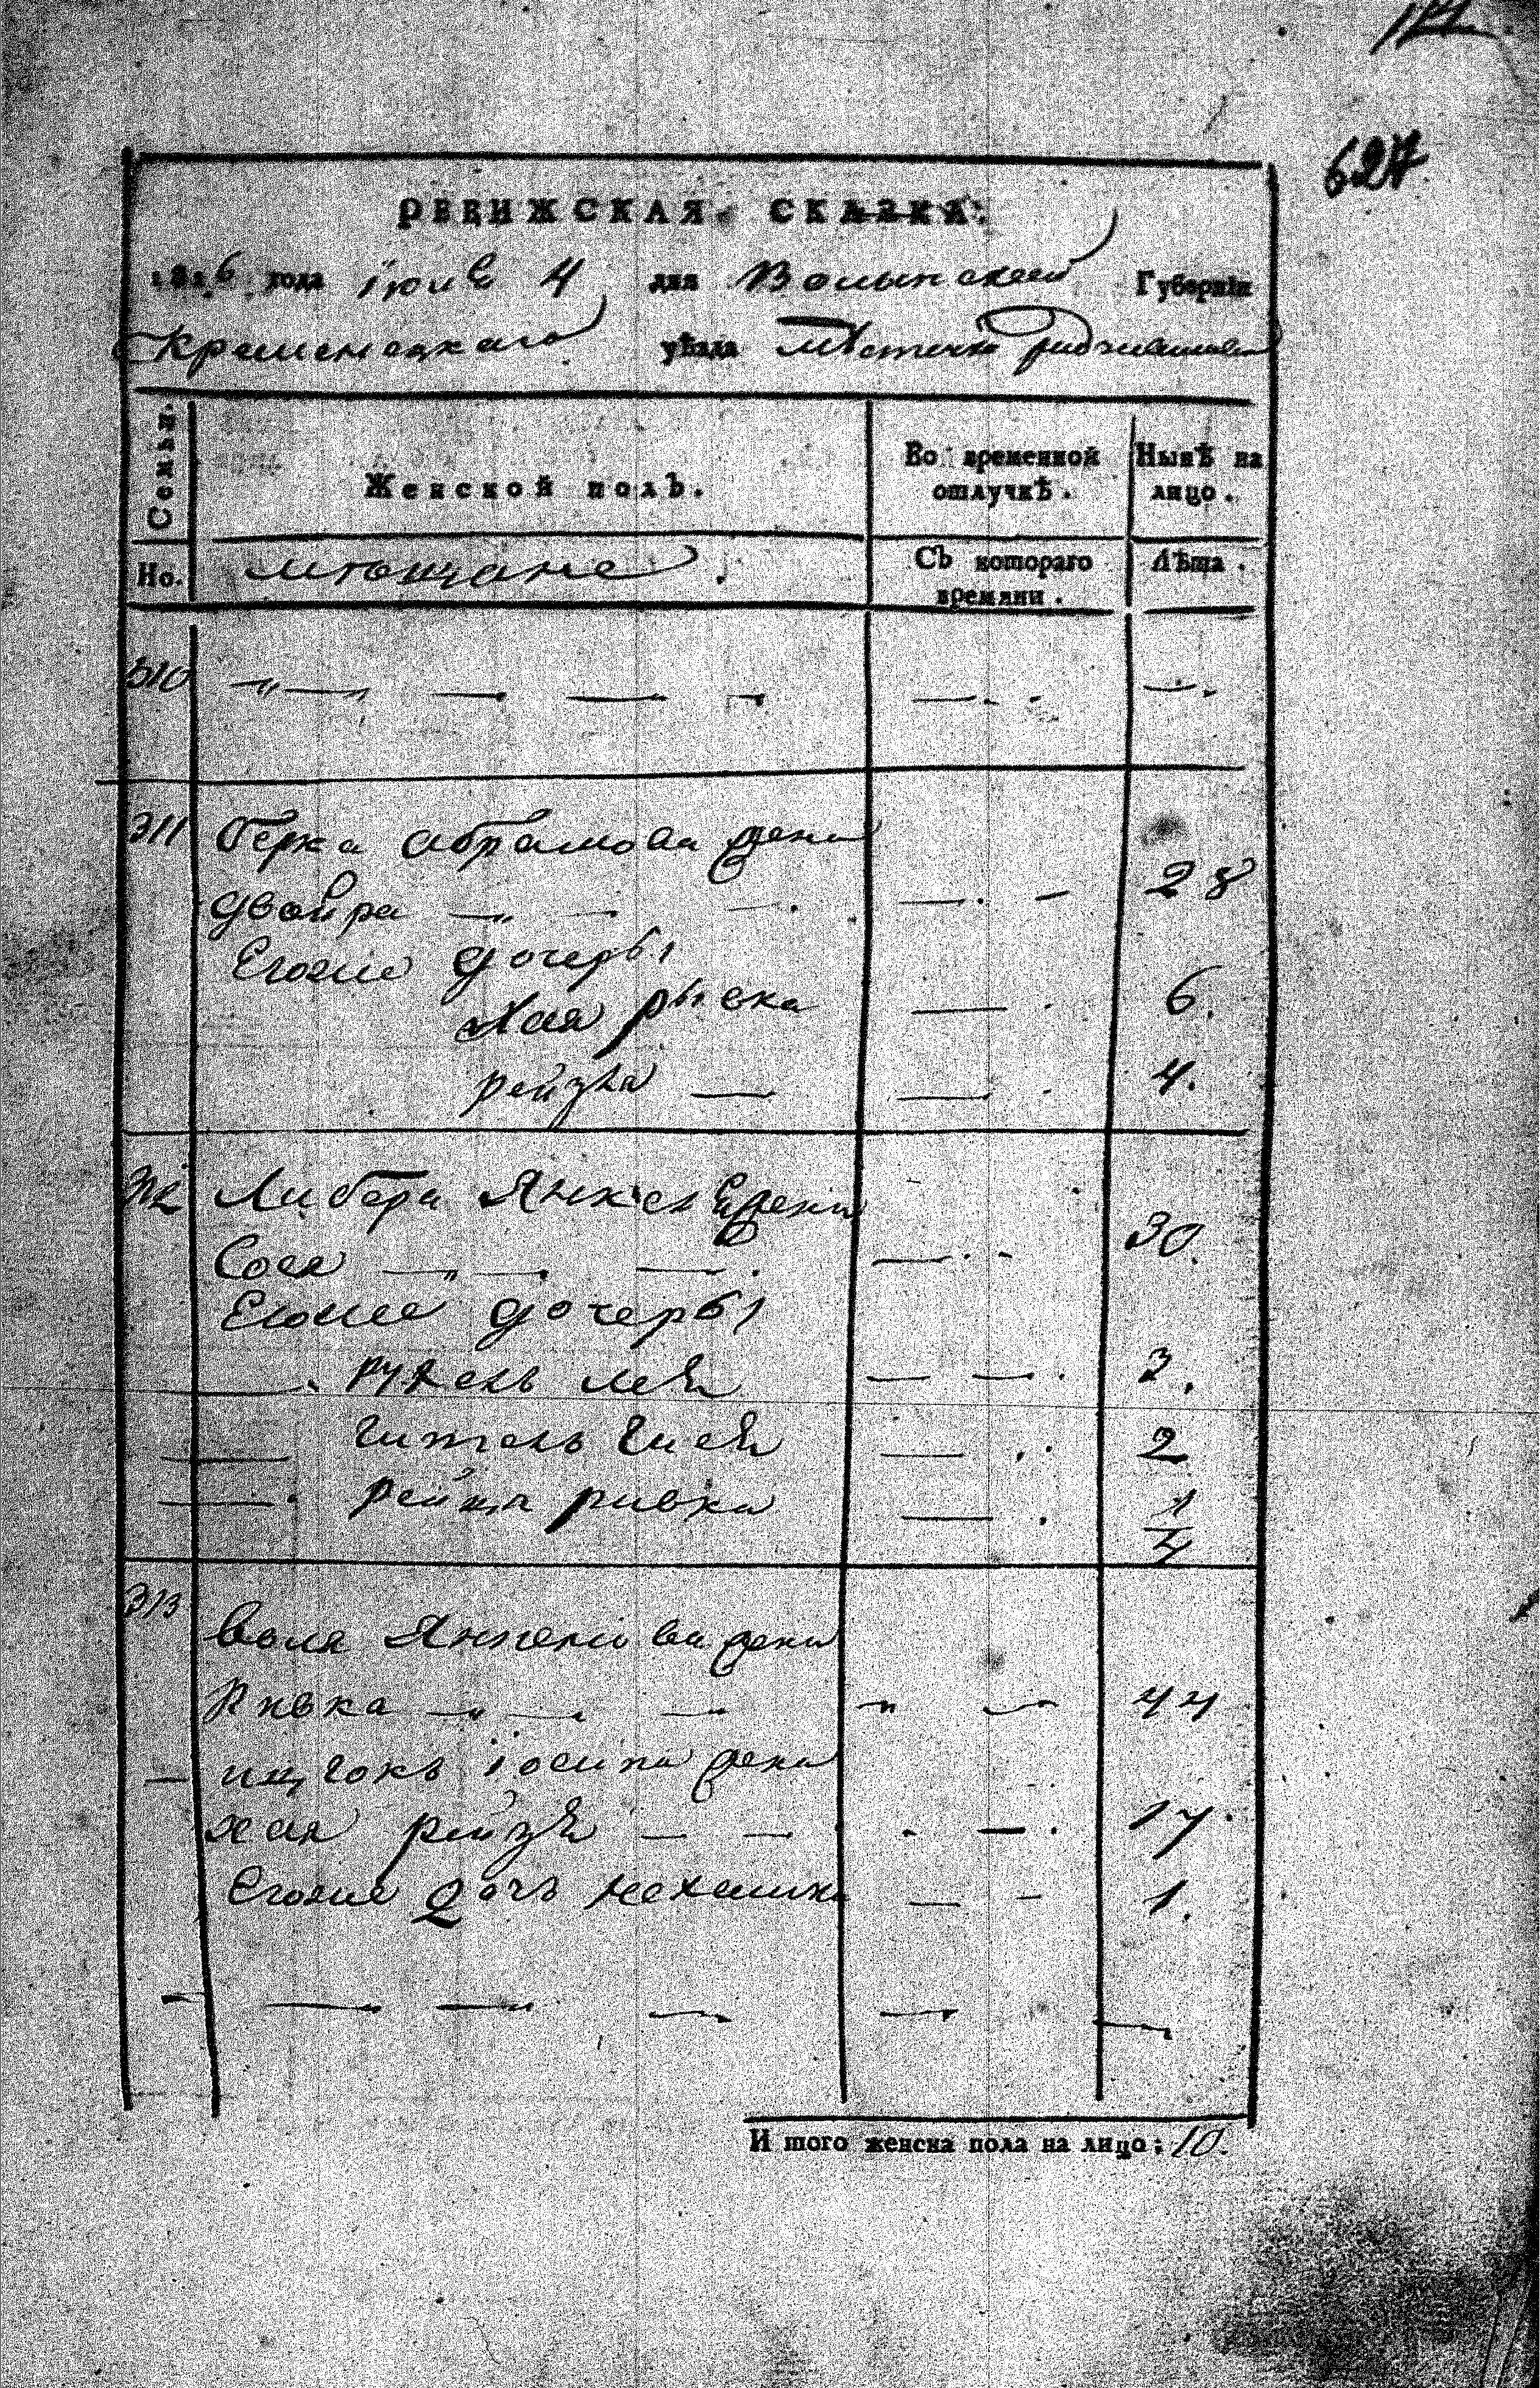 627
РЕВИЖСКАЯ СКАЗКА.
1816 года Iюне 4 дня Волынской Губернiи
Кременецкаго уѣзда Мѣстечка
Семьи.
Женской полъ.
Во временной отлучкѣ.
Нынѣ на лицо.
Но.
Мѣщане.
Съ котораго времяни.
Лѣта.
310
311 Берка Абрамова жена
Двойра 28
Егоже дочеры
Хая Рыска 6.
Рейзя 4.
312 Либера Янкелева жена
Сося 30.
Егоже дочеры
Рухель Лея 3.
Гитель Гися 2
Рейца Ривка 1/4
313 Воля Янкелева жена
Ривка 44
Ицгокъ Iосипа жена
Хая Рейзя 17.
Егоже дочь Нехамика 1.
И того женска пола на лицо; 10.